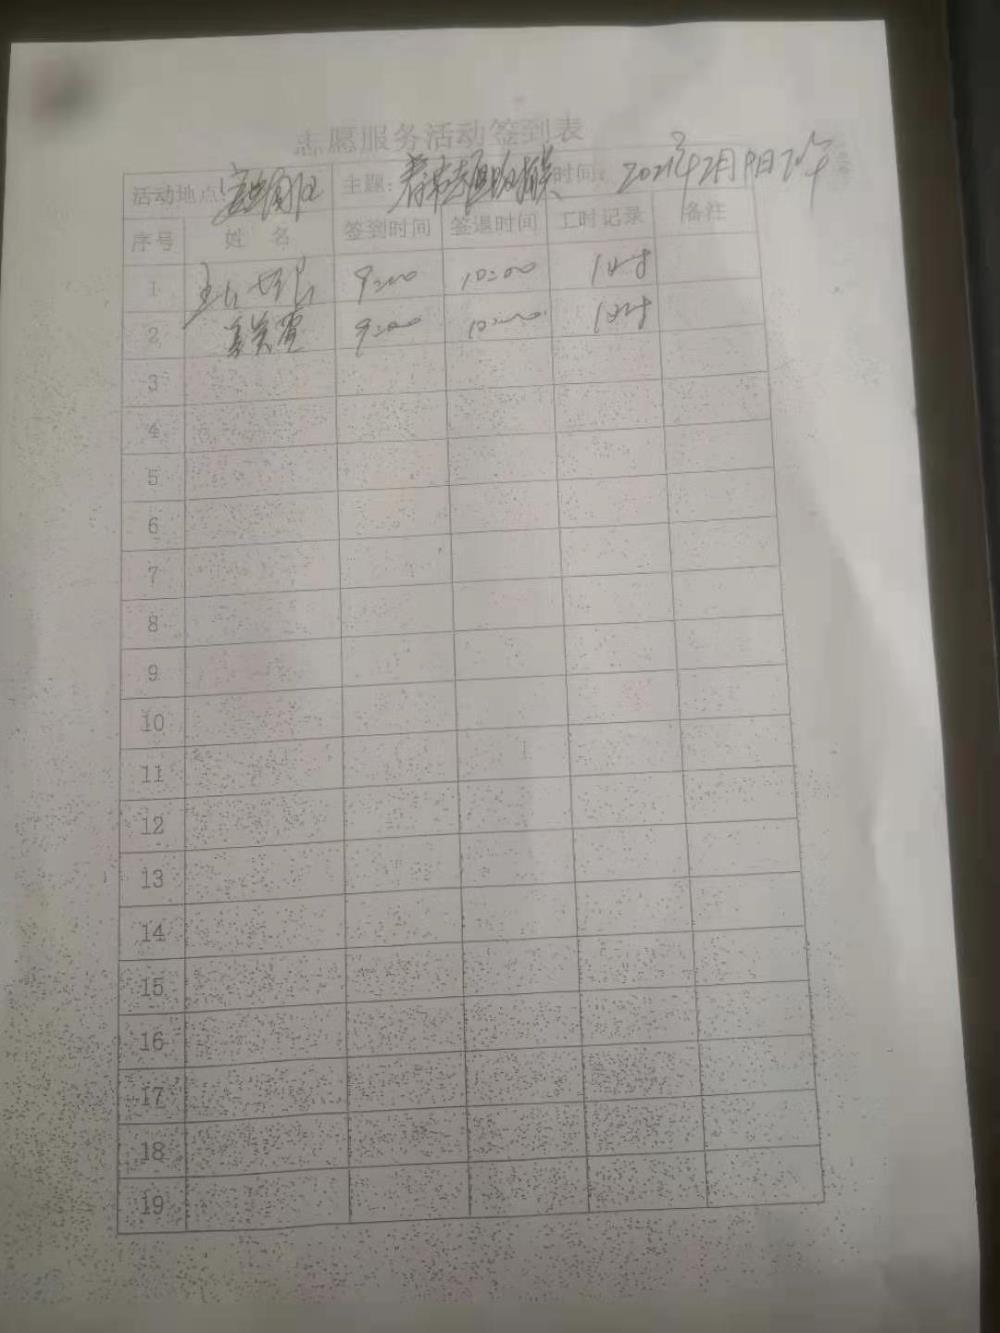 志愿服务活动签到表
活动地点: 主题: 时间: 2023年2月 日
序号 姓 名 签到时间 签退时间 工时记录 备注
1 9:00 10:00 1小时
2 9:00 10:00 1小时
3
4
5
6
7
8
9
10
11
12
13
14
15
16
17
18
19